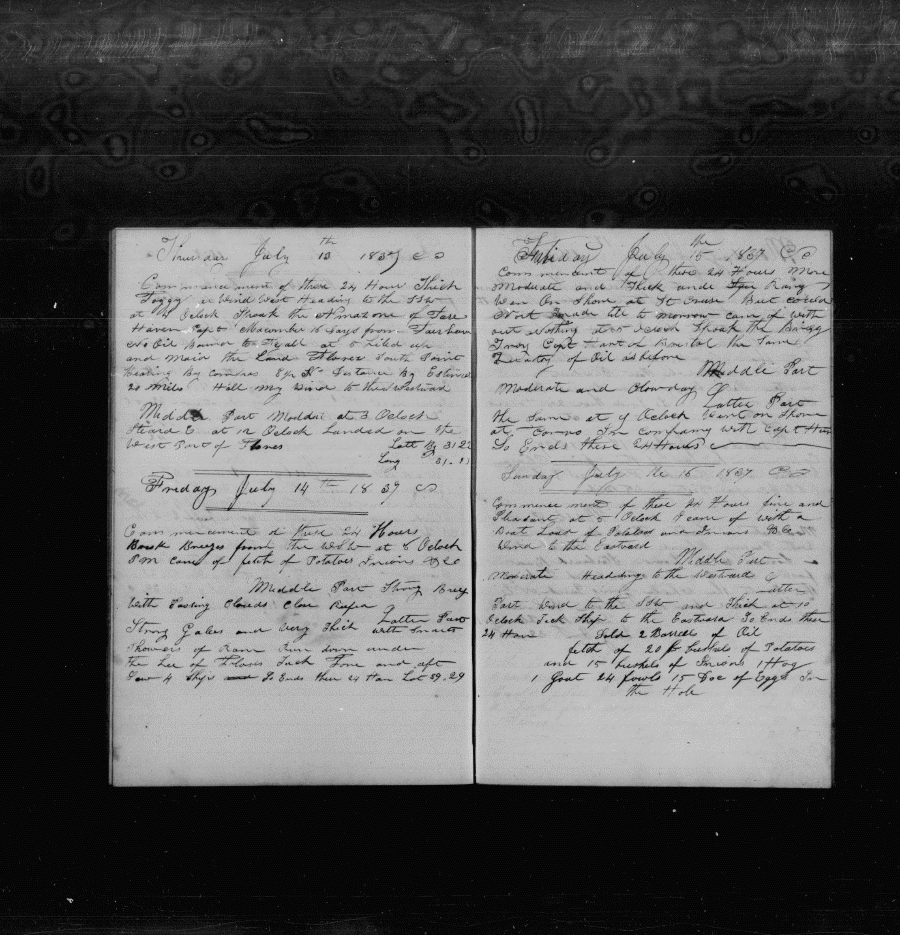 Thursday July 13th 1837
Commencement of these 24 Hour Thick
Foggy Wind West Heading to the SSW
at Oclock Spoak the Amazone of Fare
Haven Capt 16 Days from Fairhaven
No Oil Bound to Fyall at 5 hiled up
and maid the Land Flores South Point
bearing By compass Distance By Estime
20 miles Wind to the Westward
Middle Part Modder at 3 Oclock
Steard E at 12 Oclock Landed on the
West Part of Flores Latt By 31 22
Long 31.11
Friday July 14th 1837
Commencement of these 24 Hours
Brisk Breezes from the WSW at 6 Oclock
PM came of fetch of Potatoes Inions &c
Middle Part Strong Breez
With Passing Clouds Close Reefed
Latter Part
Strong Gales and very Thick with Smart
Showers of Rane Run down under
the Lee of Flores Tuck Fore and aft
Saw 4 Ships So Ends these 24 Hour Lat 39.29
July the 15 1837
Commencment of these 24 Hours More
Moderate and Thick and Rany
Wen On Shore at St Cruse But could
Not Trade till to morrow came of with
out Nothing at 5 Oclock Spoak the
Capt the Same
of Oil as before
Middle Part
Moderate and Clowday
Latter Part
the Same at 9 Oclock Went on Shore
at Corvo In Company with Capt
So Ends these 24 Hours
Sunday July the 16 1837
Commencement of these 24 Hours fine and
Pleasant at 5 Oclock came of with a
Boat Load of Potatoes and Inions &c
Wind to the Eastward
Middle Part
Moderate Heading to the Westward
Latter
Part Wind to the SSW and Thick at 10
Oclock Tuck Ship to the Eastward So Ends these
24 Hour Sold 2 Barrels of Oil
fetch of 20 bushels of Potatoes
and 15 bushels of Inions 1 Hog
1 Goat 24 fowls 15 Doc of Eggs For
the Hole